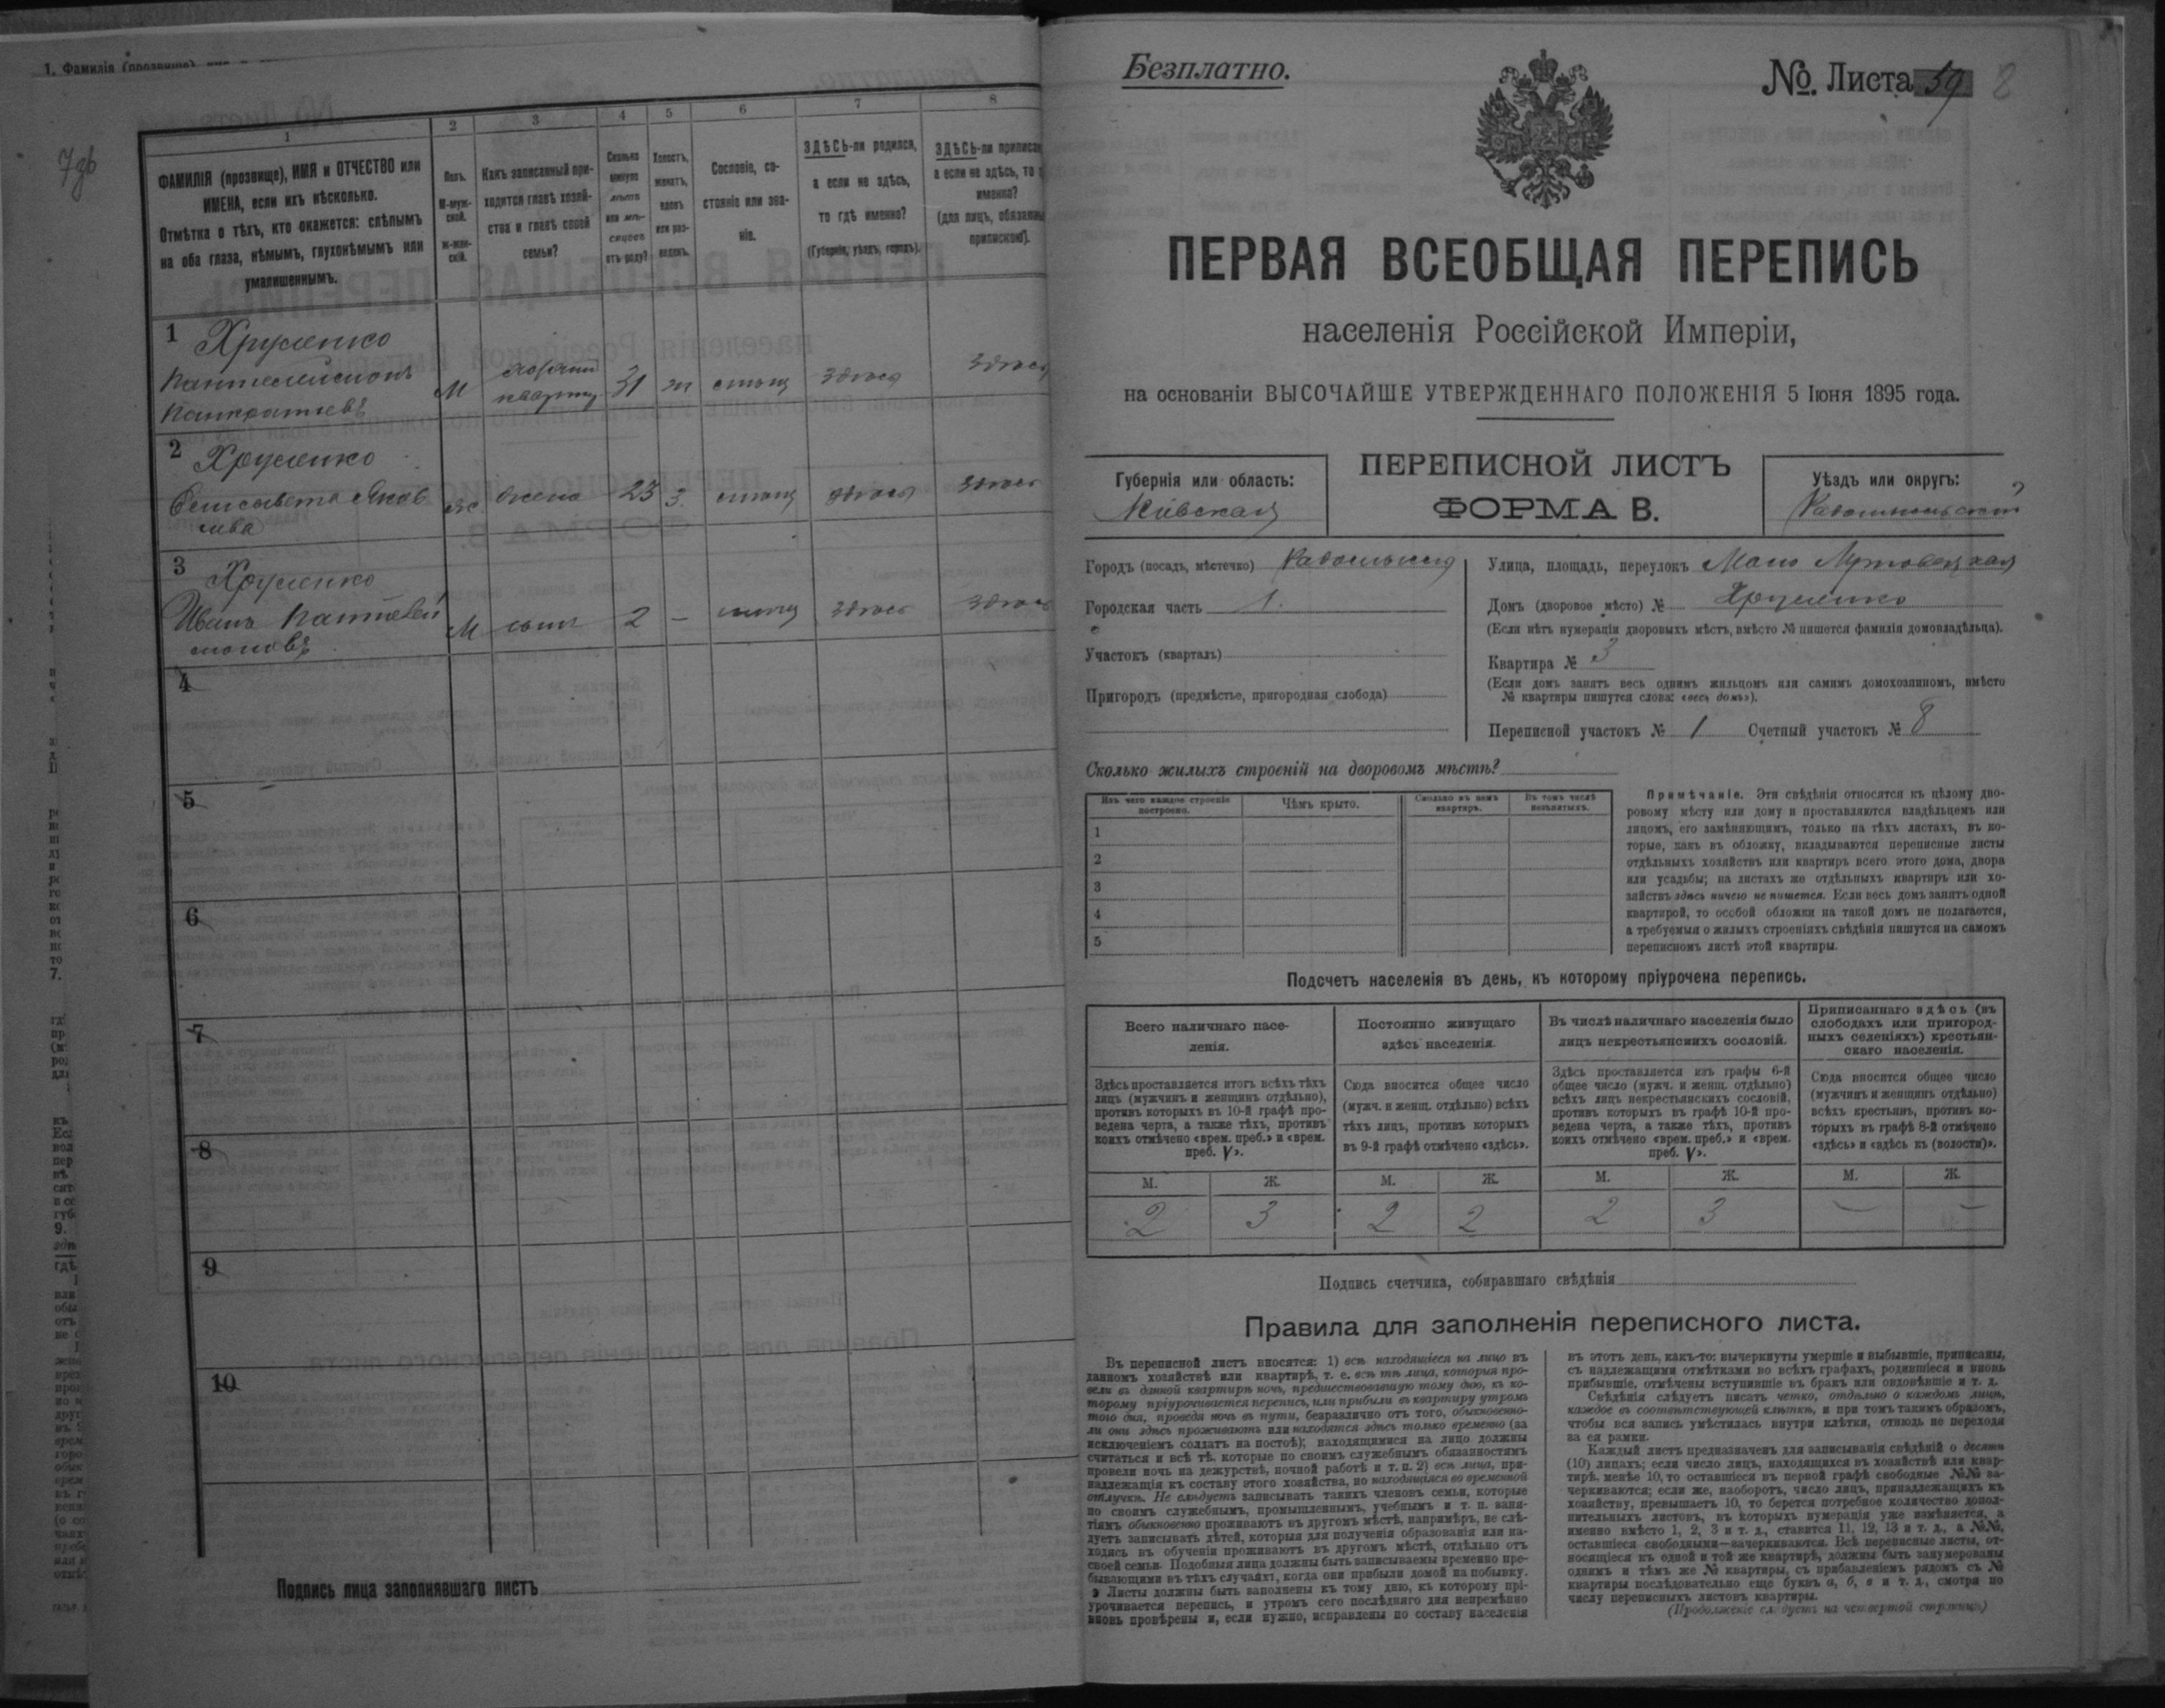 1. Фамилія (прозвище),
1
2
3
4
5
6
7
8
ФАМИЛІЯ (прозвище), ИМЯ и ОТЧЕСТВО или
ИМЕНА, если ихъ нѣсколько.
Отмѣтка о тѣхъ, кто окажется: слѣпымъ
на оба глаза, нѣмымъ, глухонѣмымъ или
умалишеннымъ.
Полъ.
М-муж-
ской.
Ж-жен-
скій.
Какъ записанный при-
ходится главѣ хозяй-
ства и главѣ своей
семьи?
Сколько
минуло
лѣтъ
или мѣ-
сяцевъ
отъ роду?
Холостъ,
женатъ,
вдовъ
или раз-
веденъ.
Сословіе, со-
стояніе или зва-
ніе.
ЗДѢСЬ-ли родился,
а если не здѣсь,
то гдѣ именно?
(Губернія, уѣздъ, городъ).
ЗДѢСЬ-ли приписанъ
а если не здѣсь, то
именно?
(для лицъ, обязанныхъ
припискою).
1 Хруленко
Пантелеймонъ
Панкратьевъ
М
31
здѣсь
здѣсь
2 Хруленко
Елисавета Яков
лева
жена
23
з.
здѣсь
здѣсь
3 Хруленко
Иванъ Пантелей
моновъ
М
сынъ
2
—
здѣсь
здѣсь
4
5
6
7
8
9
10
Подпись лица заполнявшаго листъ
Безплатно.
№. Листа 59 8
ПЕРВАЯ ВСЕОБЩАЯ ПЕРЕПИСЬ
населенія Россійской Имперіи,
на основаніи ВЫСОЧАЙШЕ УТВЕРЖДЕННАГО ПОЛОЖЕНІЯ 5 Іюня 1895 года.
ПЕРЕПИСНОЙ ЛИСТЪ
ФОРМА В.
Губернія или область:
Кіевская
Уѣздъ или округъ:
Радомысльскій
Городъ (посадъ, мѣстечко) Радомысль
Городская часть 1.
Участокъ (кварталъ)
Пригородъ (предмѣстье, пригородная слобода)
Улица, площадь, переулокъ Мало
Домъ (дворовое мѣсто) № Хруленко
(Если нѣтъ нумераціи дворовыхъ мѣстъ, вмѣсто № пишется фамилія домовладѣльца).
Квартира № 3
(Если домъ занятъ весь однимъ жильцомъ или самимъ домохозяиномъ, вмѣсто
№ квартиры пишутся слова: «весь домъ»).
Переписной участокъ № 1 Счетный участокъ № 8
Сколько жилыхъ строеній на дворовомъ мѣстѣ?
Изъ чего каждое строеніе
построено.
Чѣмъ крыто.
Сколько въ немъ
квартиръ.
Въ томъ числѣ
незанятыхъ.
1
2
3
4
5
Примѣчаніе. Эти свѣдѣнія относятся къ цѣлому дво-
ровому мѣсту или дому и проставляются владѣльцемъ или
лицомъ, его замѣняющимъ, только на тѣхъ листахъ, въ ко-
торые, какъ въ обложку, вкладываются переписные листы
отдѣльныхъ хозяйствъ или квартиръ всего этого дома, двора
или усадьбы; на листахъ же отдѣльныхъ квартиръ или хо-
зяйствъ здѣсь ничего не пишется. Если весь домъ занятъ одной
квартирой, то особой обложки на такой домъ не полагается,
а требуемыя о жилыхъ строеніяхъ свѣдѣнія пишутся на самомъ
переписномъ листѣ этой квартиры.
Подсчетъ населенія въ день, къ которому пріурочена перепись.
Всего наличнаго насе-
ленія.
Постоянно живущаго
здѣсь населенія.
Въ числѣ наличнаго населенія было
лицъ некрестьянскихъ сословій.
Приписаннаго здѣсь (въ
слободахъ или пригород-
ныхъ селеніяхъ) крестьян-
скаго населенія.
Здѣсь проставляется итогъ всѣхъ тѣхъ
лицъ (мужчинъ и женщинъ отдѣльно),
противъ которыхъ въ 10-й графѣ про-
ведена черта, а также тѣхъ, противъ
коихъ отмѣчено «врем. преб.» и «врем.
преб. V».
Сюда вносится общее число
(мужч. и женщ. отдѣльно) всѣхъ
тѣхъ лицъ, противъ которыхъ
въ 9-й графѣ отмѣчено «здѣсь».
Здѣсь проставляется изъ графы 6-й
общее число (мужч. и женщ. отдѣльно)
всѣхъ лицъ некрестьянскихъ сословій,
противъ которыхъ въ графѣ 10-й про-
ведена черта, а также тѣхъ, противъ
коихъ отмѣчено «врем. преб.» и «врем.
преб. V».
Сюда вносится общее число
(мужчинъ и женщинъ отдѣльно)
всѣхъ крестьянъ, противъ ко-
торыхъ въ графѣ 8-й отмѣчено
«здѣсь» и «здѣсь къ (волости)».
М. Ж. М. Ж. М. Ж. М. Ж.
2 3 2 2 2 3 — —
Подпись счетчика, собиравшаго свѣдѣнія
Правила для заполненія переписного листа.
Въ переписной листъ вносятся: 1) всѣ находящіеся на лицо въ
данномъ хозяйствѣ или квартирѣ, т. е. всѣ тѣ лица, которыя про-
вели въ данной квартирѣ ночь, предшествовавшую тому дню, къ ко-
торому пріурочивается перепись, или прибыли въ квартиру утромъ
того дня, проведя ночь въ пути, безразлично отъ того, обыкновенно-
ли они здѣсь проживаютъ или находятся здѣсь только временно (за
исключеніемъ солдатъ на постоѣ); находящимися на лицо должны
считаться и всѣ тѣ, которые по своимъ служебнымъ обязанностямъ
провели ночь на дежурствѣ, ночной работѣ и т. п. 2) всѣ лица, при-
надлежащія къ составу этого хозяйства, но находящіяся во временной
отлучкѣ. Не слѣдуетъ записывать такихъ членовъ семьи, которые
по своимъ служебнымъ, промышленнымъ, учебнымъ и т. п. заня-
тіямъ обыкновенно проживаютъ въ другомъ мѣстѣ, напримѣръ, не слѣ-
дуетъ записывать дѣтей, которыя для полученія образованія или на-
ходясь въ обученіи проживаютъ въ другомъ мѣстѣ, отдѣльно отъ
своей семьи. Подобныя лица должны быть записываемы временно пре-
бывающими въ тѣхъ случаяхъ, когда они прибыли домой на побывку.
Листы должны быть заполнены къ тому дню, къ которому прі-
урочивается перепись, и утромъ сего послѣдняго дня непремѣнно
вновь провѣрены и, если нужно, исправлены по составу населенія
въ этотъ день, какъ-то: вычеркнуты умершіе и выбывшіе, приписаны,
съ надлежащими отмѣтками во всѣхъ графахъ, родившіеся и вновь
прибывшіе, отмѣчены вступившіе въ бракъ или овдовѣвшіе и т. д.
Свѣдѣнія слѣдуетъ писать четко, отдѣльно о каждомъ лицѣ,
каждое въ соотвѣтствующей клѣткѣ, и при томъ такимъ образомъ,
чтобы вся запись умѣстилась внутри клѣтки, отнюдь не переходя
за ея рамки.
Каждый листъ предназначенъ для записыванія свѣдѣній о десяти
(10) лицахъ; если число лицъ, находящихся въ хозяйствѣ или квар-
тирѣ, менѣе 10, то оставшіеся въ первой графѣ свободные №№ за-
черкиваются; если же, наоборотъ, число лицъ, принадлежащихъ къ
хозяйству, превышаетъ 10, то берется потребное количество допол-
нительныхъ листовъ, въ которыхъ нумерація уже измѣняется, а
именно вмѣсто 1, 2, 3 и т. д., ставится 11, 12, 13 и т. д., а №№,
оставшіеся свободными—зачеркиваются. Всѣ переписные листы, от-
носящіеся къ одной и той же квартирѣ, должны быть занумерованы
однимъ и тѣмъ же № квартиры, съ прибавленіемъ рядомъ съ №
квартиры послѣдовательно еще буквъ а, б, в и т. д., смотря по
числу переписныхъ листовъ квартиры.
(Продолженіе слѣдуетъ на четвертой страницѣ)